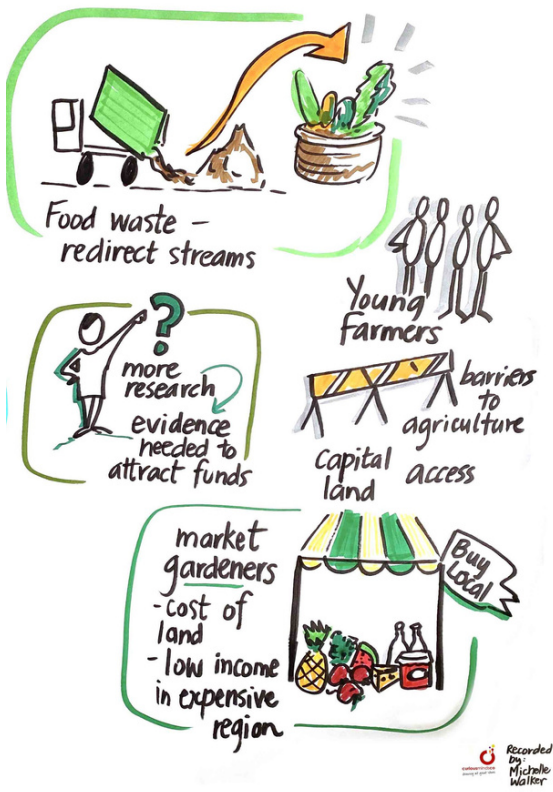 Food waste -
redirect streams
Young
farmers
?
more
research
evidence
needed to
attract funds
barriers
to
agriculture
capital access
land
market
gardeners
- cost of
land
- low income
in expensive
region
Buy
Local
Recorded
by:
Michelle
Walker